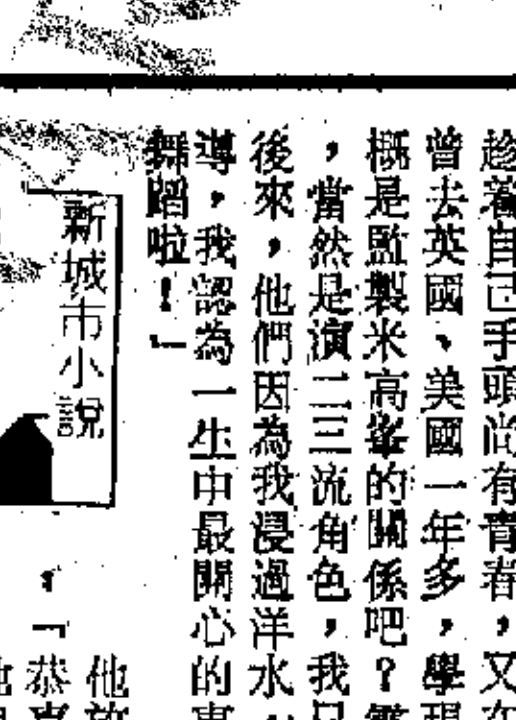 趁着自己手頭尚有青春,又
曾去英國、美國一年多,學
概是監製米高峯的關係吧?
,當然是演二三流角色,我
後來,他們因為我浸過洋水
導,我認為一生中最開心的
舞蹈啦!」
新城市小說
他
,「恭